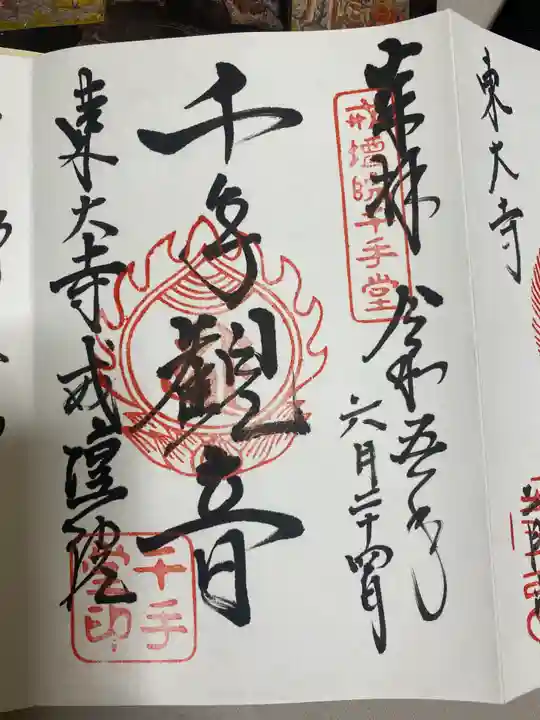 東大寺
奉拝
戒壇院千手堂
令和五年
六月二十四日
千手觀音
東大寺戒壇院
千手
堂印